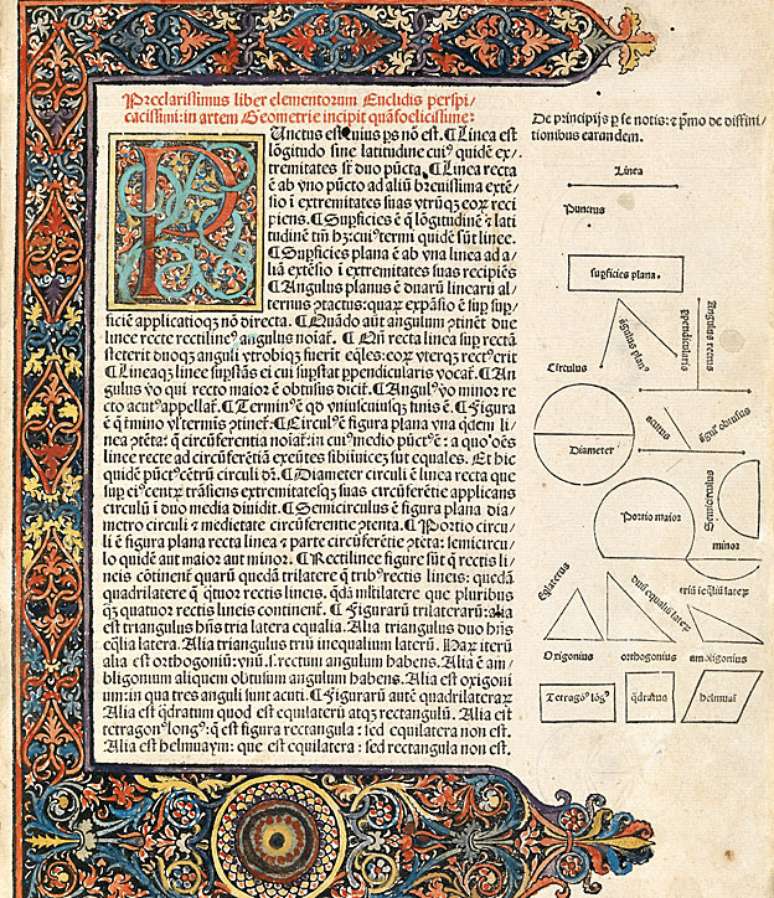 Preclarissimus liber elementorum Euclidis perspi/
cacissimi: in artem Geometrie incipit quãfoelicissime:
Punctus est cuius ps nõ est. ¶ Linea est
lõgitudo sine latitudine cui⁹ quidẽ ex/
tremitates sũt duo pũcta. ¶ Linea recta
ẽ ab vno pũcto ad aliũ breuissima extẽ/
sio ĩ extremitates suas vtrũqꝫ eoꝝ reci
piens. ¶ Supficies ẽ q̃ lõgitudinẽ ⁊ lati
tudinẽ tm̃ hꝫ: cui⁹ termi quidẽ sũt linee.
¶ Supficies plana ẽ ab vna linea ad a/
liã extẽsio ĩ extremitates suas recipiẽs
¶ Angulus planus ẽ duarũ linearũ al/
ternus ꝯtactus: quaꝝ expãsio ẽ sup sup/
ficiẽ applicatioqꝫ nõ directa. ¶ Quãdo aũt angulum ꝯtinẽt due
linee recte rectiline⁹ angulus noiat̃. ¶ Qñ recta linea sup rectã
steterit duoqꝫ anguli vtrobiqꝫ fuerit eq̃les: eoꝝ vterqꝫ rect⁹ erit
¶ Lineaqꝫ linee supstãs ei cui supstat ppendicularis vocat̃. ¶ An
gulus vo qui recto maior ẽ obtusus dicit̃. ¶ Angul⁹ vo minor re
cto acut⁹ appellat̃. ¶ Termin⁹ ẽ qd vniuscuiusqꝫ finis ẽ. ¶ Figura
ẽ q̃ tmino vl̃ termis ꝯtinet̃. ¶ Circul⁹ ẽ figura plana vna qdem li/
nea ꝯtẽta: q̃ circũferentia noiat̃: in cui⁹ medio pũct⁹ ẽ: a quo oẽs
linee recte ad circũferẽtiã exeũtes sibiinuicẽ sut equales. Et hic
quidẽ pũct⁹ cẽtrũ circuli dr̃. ¶ Diameter circuli ẽ linea recta que
sup ei⁹ centꝝ trãsiens extremitatesqꝫ suas circũferẽtie applicans
circulũ ĩ duo media diuidit. ¶ Semicirculus ẽ figura plana dia/
metro circuli ⁊ medietate circũferentie ꝯtenta. ¶ Portio circu/
li ẽ figura plana recta linea ⁊ parte circũferẽtie ꝯtẽta: semicircu/
lo quidẽ aut maior aut minor. ¶ Rectilinee figure sũt q̃ rectis li/
neis cõtinent̃ quarũ quedã trilatere q̃ trib⁹ rectis lineis: quedã
quadrilatere q̃ q̃tuor rectis lineis. q̃dã ml̃tilatere que pluribus
qꝫ quatuor rectis lineis continent̃. ¶ Figurarũ trilaterarũ: alia
est triangulus hñs tria latera equalia. Alia triangulus duo hñs
eq̃lia latera. Alia triangulus triũ inequalium laterũ. Haꝝ iterũ
alia est orthogoniũ: vnũ .s. rectum angulum habens. Alia ẽ am/
bligonium aliquem obtusum angulum habens. Alia est oxigoni
um: in qua tres anguli sunt acuti. ¶ Figurarũ autẽ quadrilateraꝝ
Alia est q̃dratum quod est equilaterũ atqꝫ rectangulũ. Alia est
tetragon⁹ long⁹: q̃ est figura rectangula: sed equilatera non est.
Alia est helmuaym: que est equilatera: sed rectangula non est.
De principijs p se notis: ⁊ pmo de diffini/
tionibus earandem.
Linea
Punctus
supficies plana.
ãgulus plan⁹
ppendicularis
angulus rectus
Circulus
Diameter
acutus
ãgul⁹ obtusus
Portio maior
Semicirculus
minor
Eq̃laterus
duũ equaliũ lateꝝ
triũ ieq̃liũ lateꝝ
Oxigonius
orthogonius
ambligonius
Tetragon⁹ lõg⁹
q̃dratus
helmuaĩ